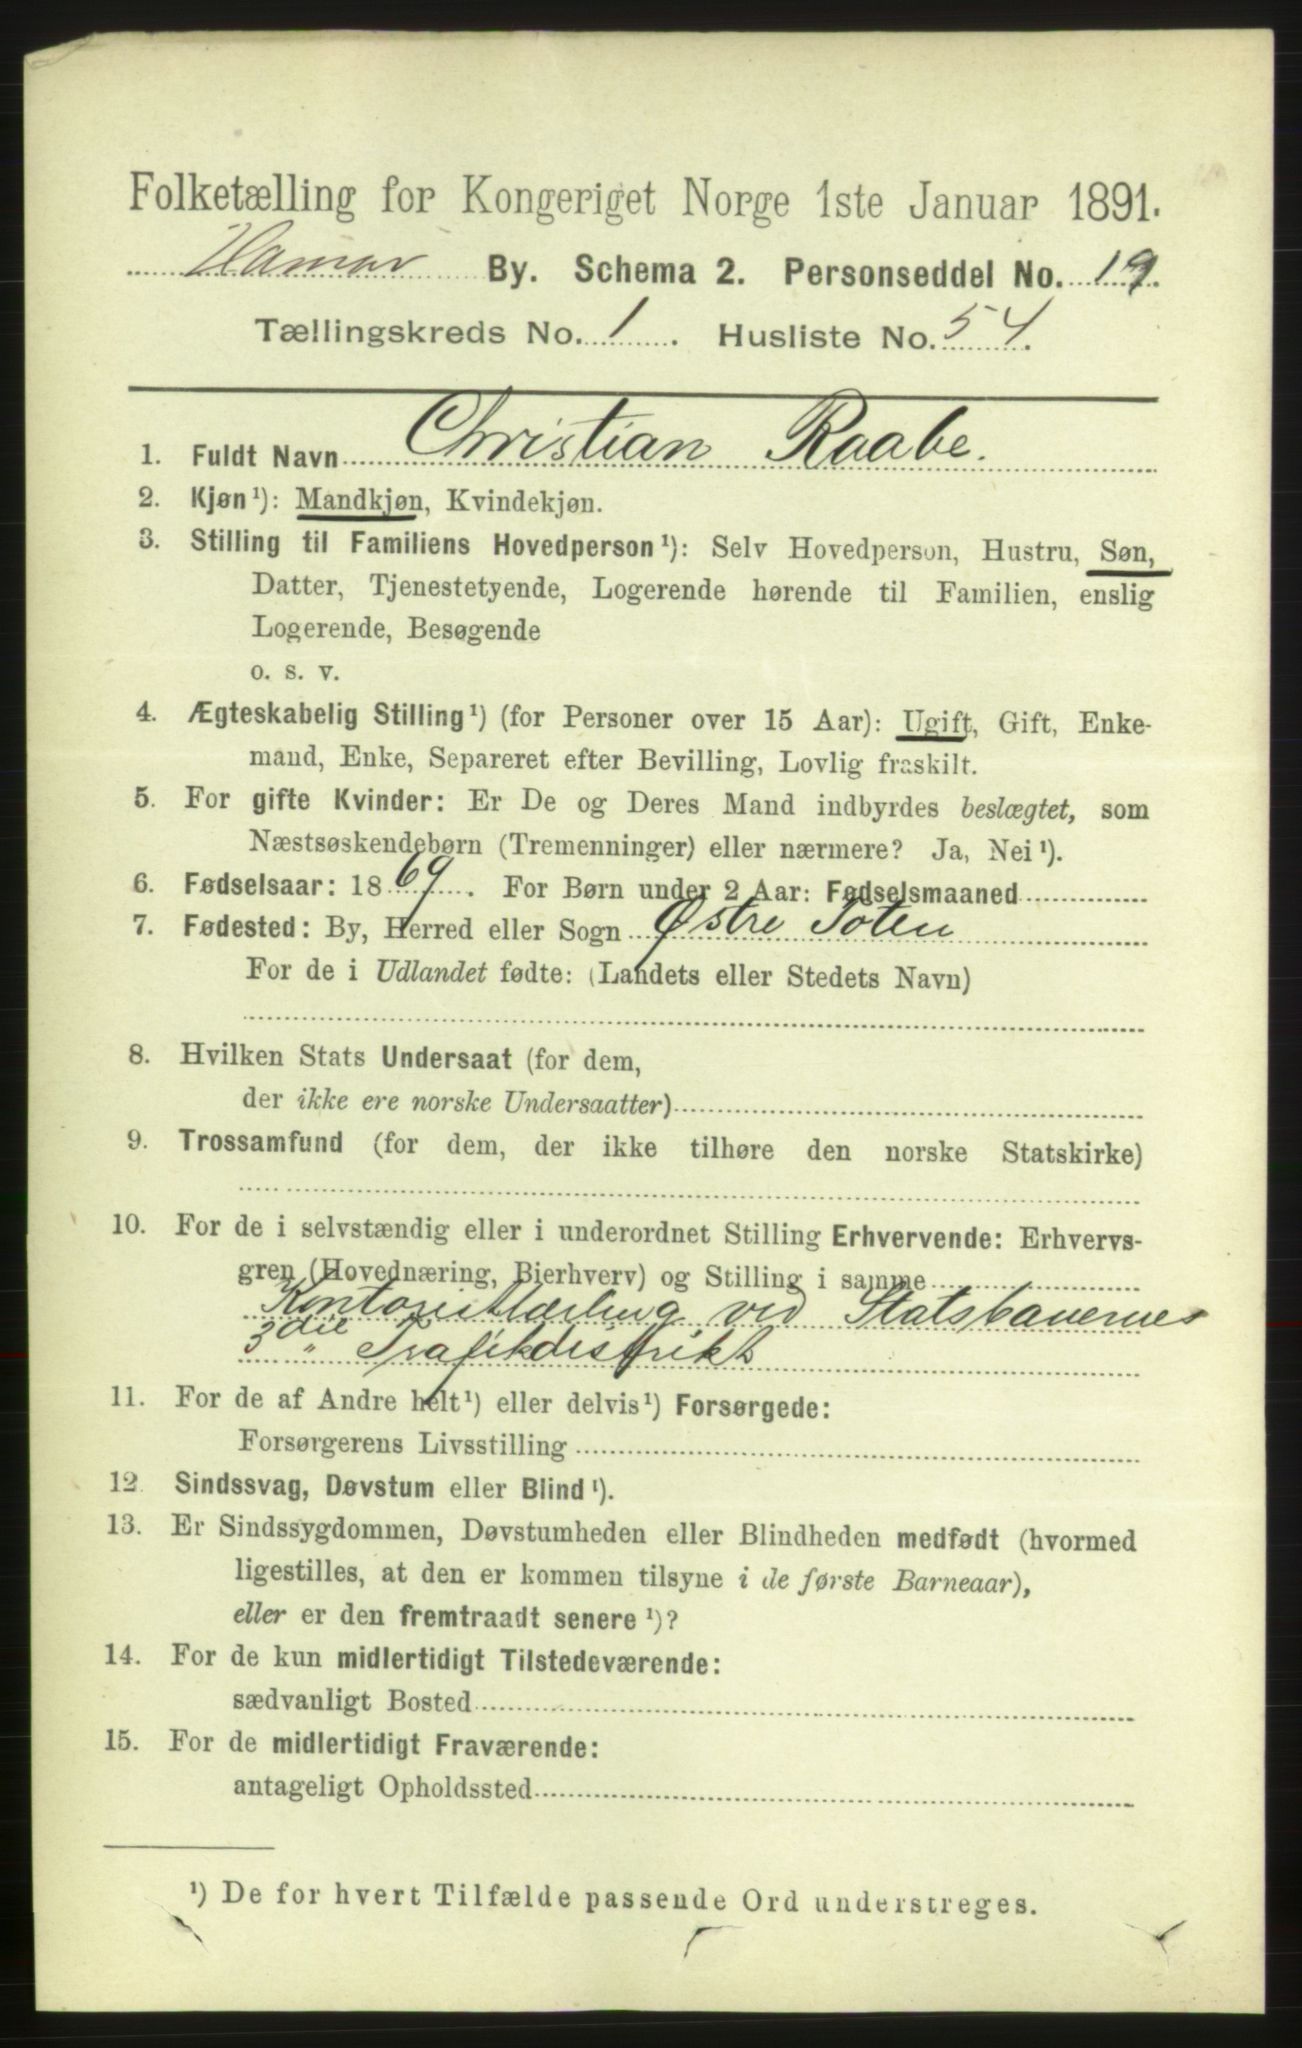 Folketælling for Kongeriget Norge 1ste Januar 1891.
Hamar By. Schema 2. Personseddel No. 19.
Tællingskreds No. 1. Husliste No. 54.
1. Fuldt Navn Christian Raabe.
2. Kjøn¹): Mandkjøn, Kvindekjøn.
3. Stilling til Familiens Hovedperson¹): Selv Hovedperson, Hustru, Søn,
Datter, Tjenestetyende, Logerende hørende til Familien, enslig
Logerende, Besøgende
o. s. v.
4. Ægteskabelig Stilling¹) (for Personer over 15 Aar): Ugift, Gift, Enke-
mand, Enke, Separeret efter Bevilling, Lovlig fraskilt.
5. For gifte Kvinder: Er De og Deres Mand indbyrdes beslægtet, som
Næstsøskendebørn (Tremenninger) eller nærmere? Ja, Nei¹).
6. Fødselsaar: 1869. For Børn under 2 Aar: Fødselsmaaned
7. Fødested: By, Herred eller Sogn Østre Toten
For de i Udlandet fødte: (Landets eller Stedets Navn)
8. Hvilken Stats Undersaat (for dem,
der ikke ere norske Undersaatter)
9. Trossamfund (for dem, der ikke tilhøre den norske Statskirke)
10. For de i selvstændig eller i underordnet Stilling Erhvervende: Erhvervs-
gren (Hovednæring, Bierhverv) og Stilling i samme
Kontoristlærling ved Statsbanernes
3die Trafikdistrikt
11. For de af Andre helt¹) eller delvis¹) Forsørgede:
Forsørgerens Livsstilling
12. Sindssvag, Døvstum eller Blind¹).
13. Er Sindssygdommen, Døvstumheden eller Blindheden medfødt (hvormed
ligestilles, at den er kommen tilsyne i de første Barneaar),
eller er den fremtraadt senere¹)?
14. For de kun midlertidigt Tilstedeværende:
sædvanligt Bosted
15. For de midlertidigt Fraværende:
antageligt Opholdssted
¹) De for hvert Tilfælde passende Ord understreges.